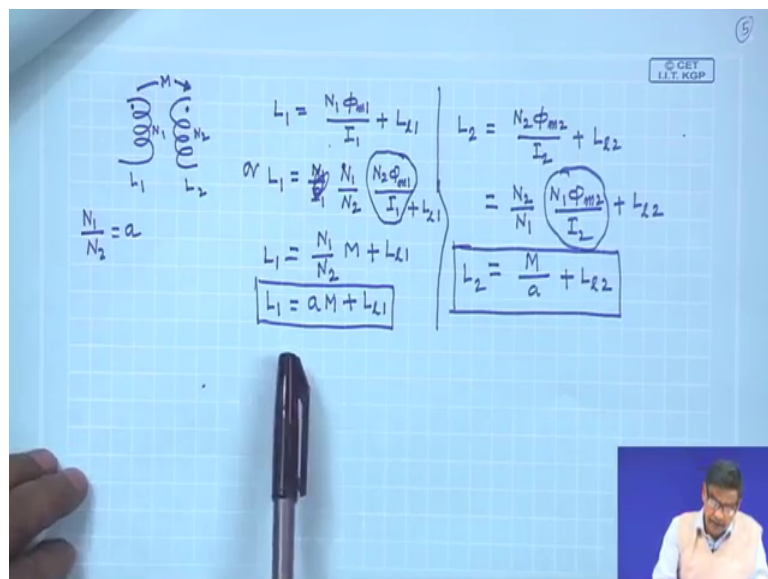 5
© CET
I.I.T. KGP
M
N₁ N₂
L₁ L₂
N₁/N₂ = a
L₁ = N₁ Φm1 / I₁ + Ll1
or L₁ = N₁/N₂ N₂ Φm1 / I₁ + Ll1
L₁ = N₁/N₂ M + Ll1
L₁ = a M + Ll1
L₂ = N₂ Φm2 / I₂ + Ll2
= N₂/N₁ N₁ Φm2 / I₂ + Ll2
L₂ = M/a + Ll2